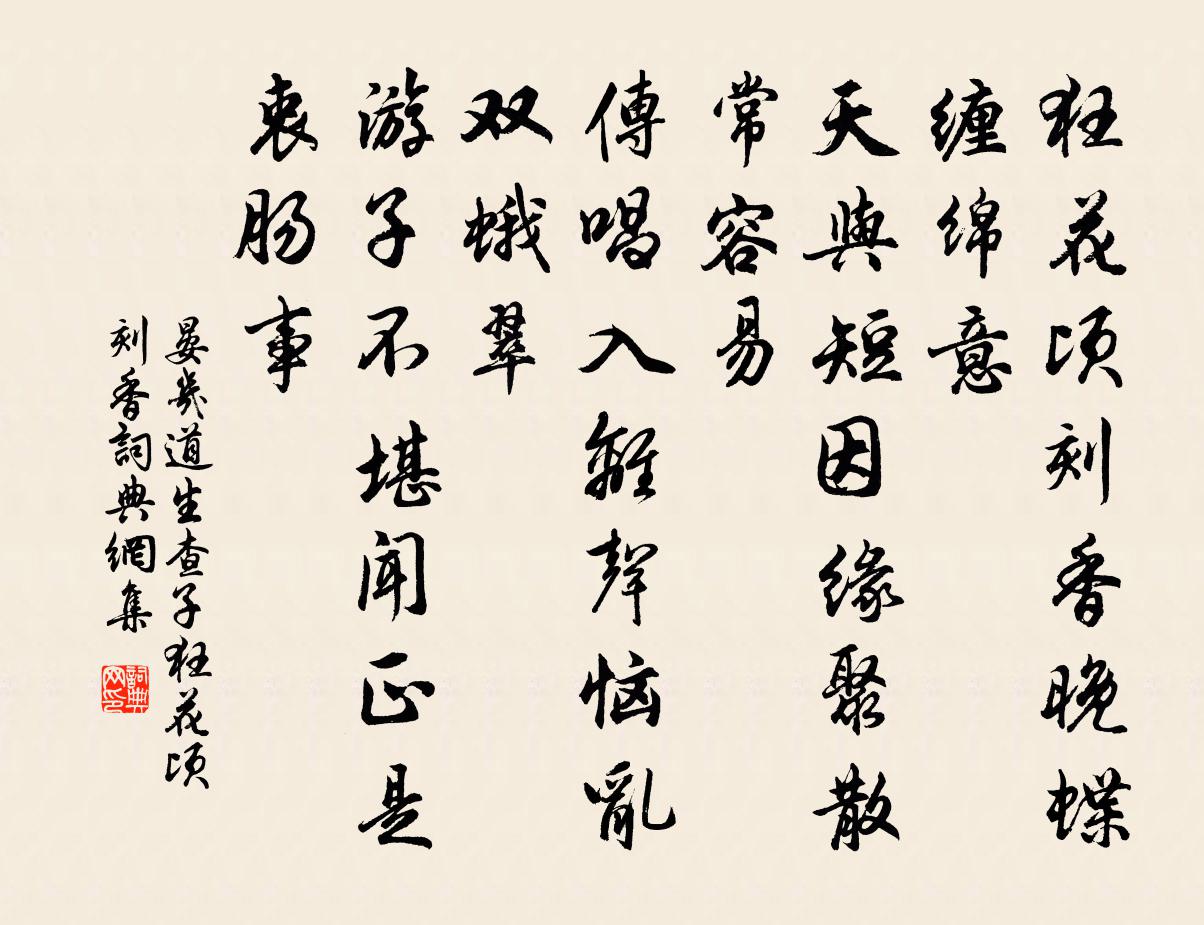 狂花顷刻香晚蝶
缠绵意
天與短因缘聚散
常容易
傳唱入離聲恼亂
双蛾翠
游子不堪闻正是
衷肠事
晏幾道生查子狂花顷
刻香詞典網集
詞典网印